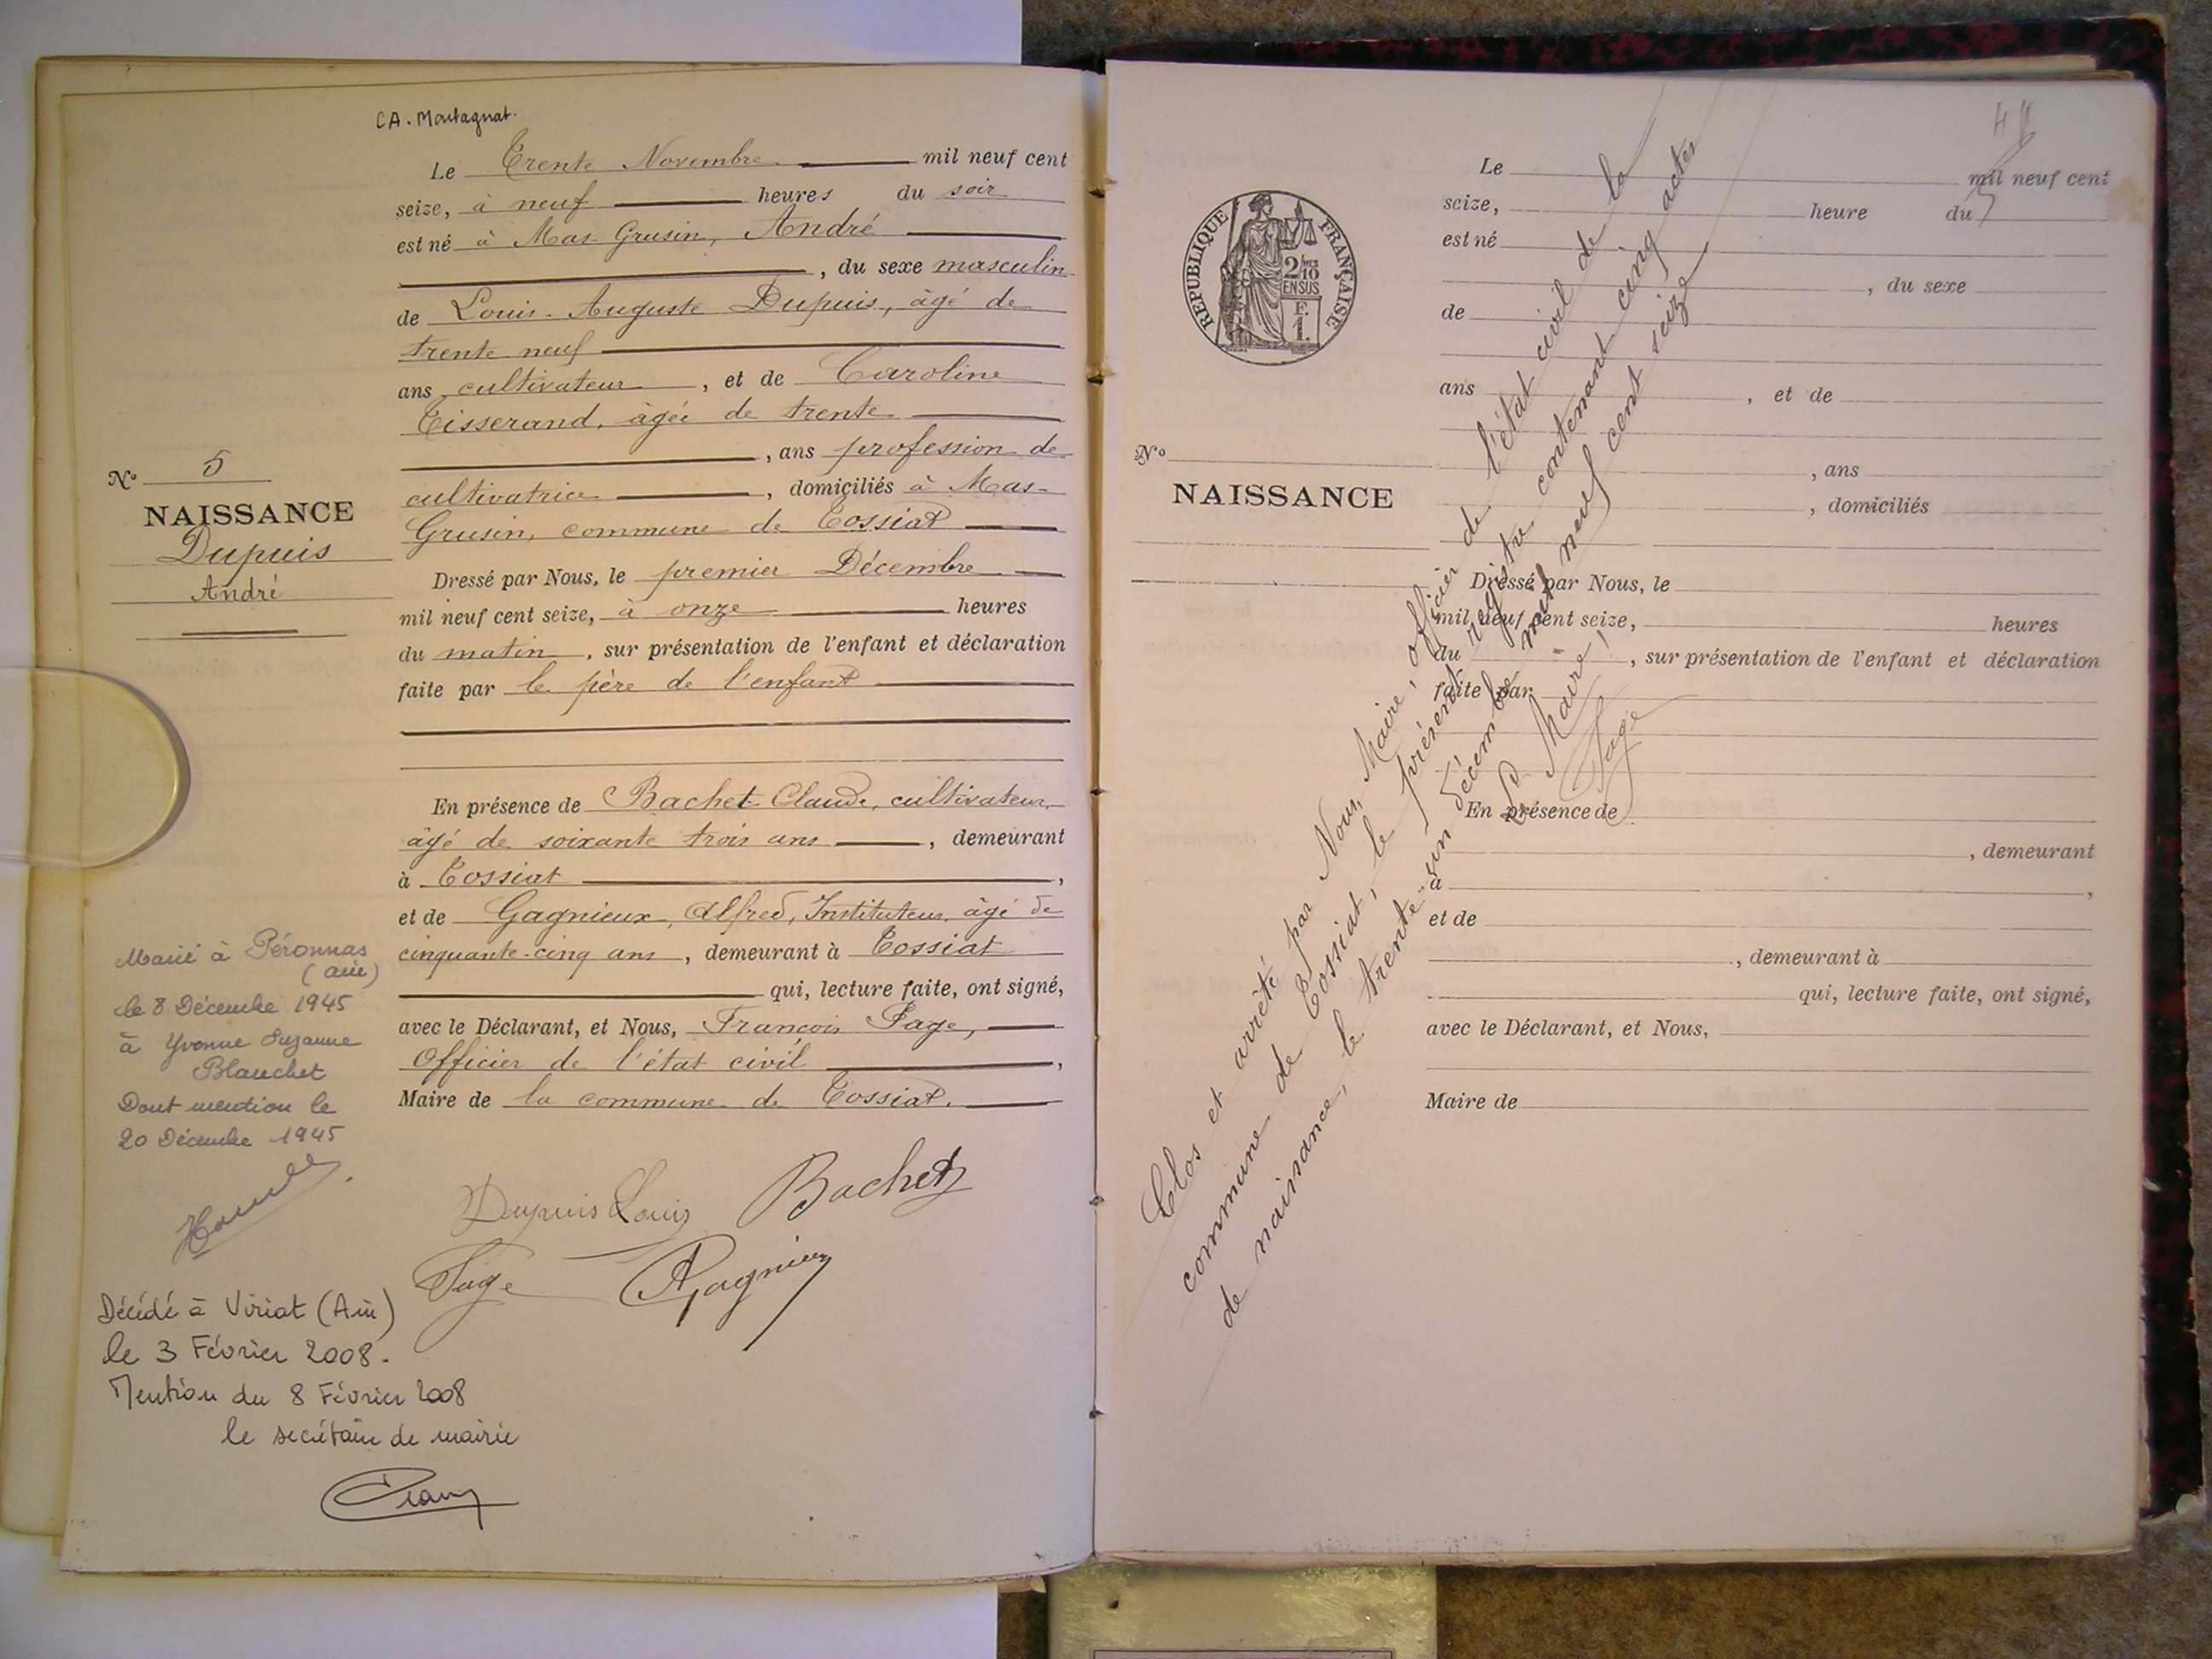 CA. Montagnat.
Le Trente Novembre mil neuf cent
seize, à neuf heures du soir
est né à Mas Grusin, André
, du sexe masculin
de Louis-Auguste Dupuis, âgé de
trente neuf
ans cultivateur, et de Caroline
Tisserand, âgée de trente
, ans profession de
cultivatrice, domiciliés à Mas-
Grusin, commune de Tossiat
Dressé par Nous, le premier Décembre
mil neuf cent seize, à onze heures
du matin, sur présentation de l'enfant et déclaration
faite par le père de l'enfant
En présence de Bachet Claude, cultivateur,
âgé de soixante trois ans, demeurant
à Tossiat,
et de Gagnieux, Alfred, Instituteur, âgé de
cinquante-cinq ans, demeurant à Tossiat
qui, lecture faite, ont signé,
avec le Déclarant, et Nous, François Page,
Officier de l'état civil,
Maire de la commune de Tossiat.
Dupuis Louis Bachet
Page AGagnieux
No 5
NAISSANCE
Dupuis
André
Marié à Péronnas
(Ain)
le 8 Décembre 1945
à Yvonne Suzanne
Blanchet
Dont mention le
20 Décembre 1945
Décédé à Viriat (Ain)
le 3 Février 2008.
Mention du 8 Février 2008
le secrétaire de mairie
REPUBLIQUE FRANÇAISE
2/10MES
EN SUS
F.
1.
No
NAISSANCE
Le mil neuf cent
seize, heure du
est né
, du sexe
de
ans , et de
, ans
, domiciliés
Dressé par Nous, le
mil neuf cent seize, heures
du , sur présentation de l'enfant et déclaration
faite par
En présence de
, demeurant
à ,
et de
, demeurant à
qui, lecture faite, ont signé,
avec le Déclarant, et Nous,
Maire de
Clos et arrêté par Nous, Maire, officier de l'état civil de la
commune de Tossiat, le présent registre contenant cinq actes
de naissance, le trente-un décembre mil neuf cent seize
Le Maire,
Page